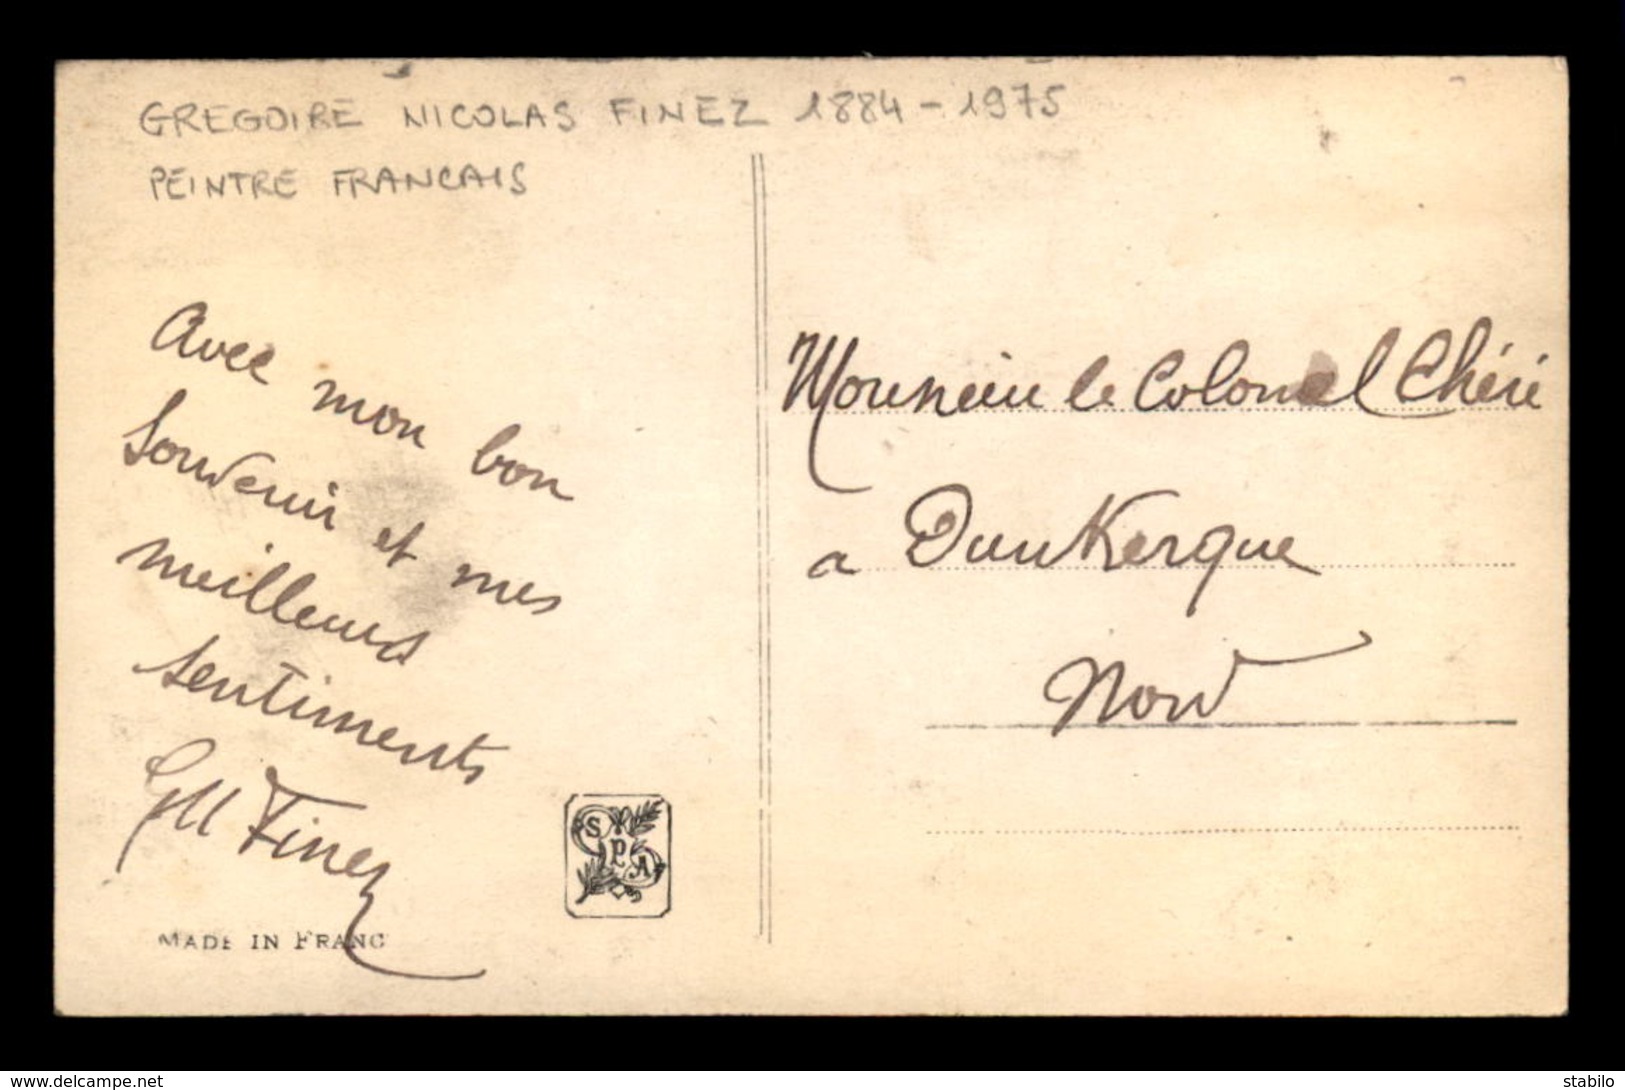 GREGOIRE NICOLAS FINEZ 1884-1975
PEINTRE FRANCAIS
Avec mon bon
Souvenir et mes
meilleurs
sentiments
Finez
MADE IN FRANC
S P A
Monsieur le Colonel Chéri
a Dunkerque
Nord
www.delcampe.net
stabilo